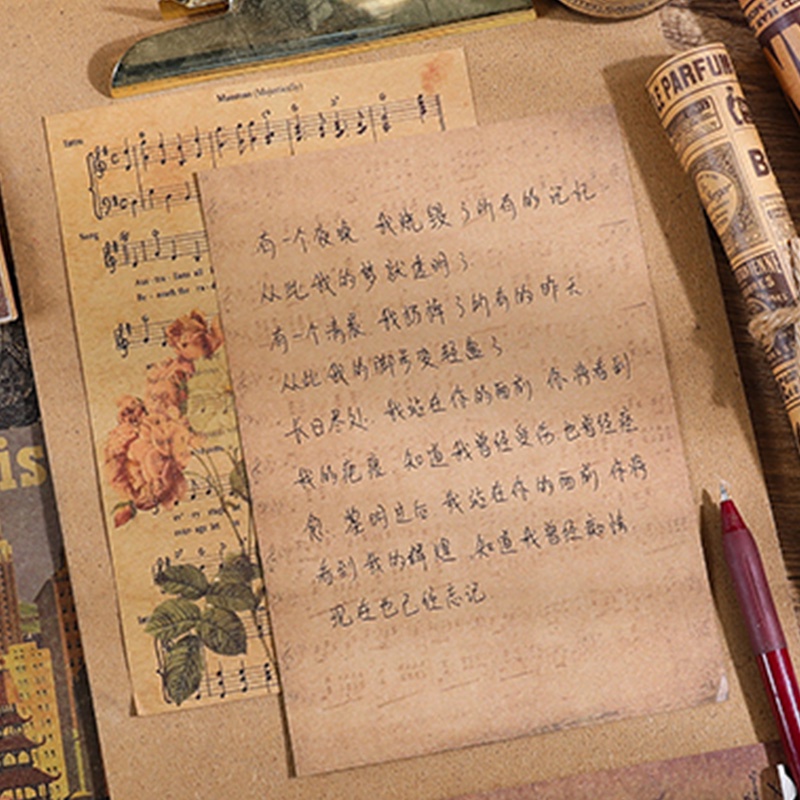 Maestoso (Majestically)
Intro
Song
有一个夜晚 我烧毁了所有的记忆
从此我的梦就透明了
有一个清晨 我扔掉了所有的昨天
从此我的脚步变轻盈了
长日尽处 我站在你的面前 你将看到
我的疤痕 知道我曾经受伤 也曾经痊
愈 黎明过后 我站在你的面前 你将
看到我的辉煌 知道我曾经
现在也已经忘记
LE PARFUM
is